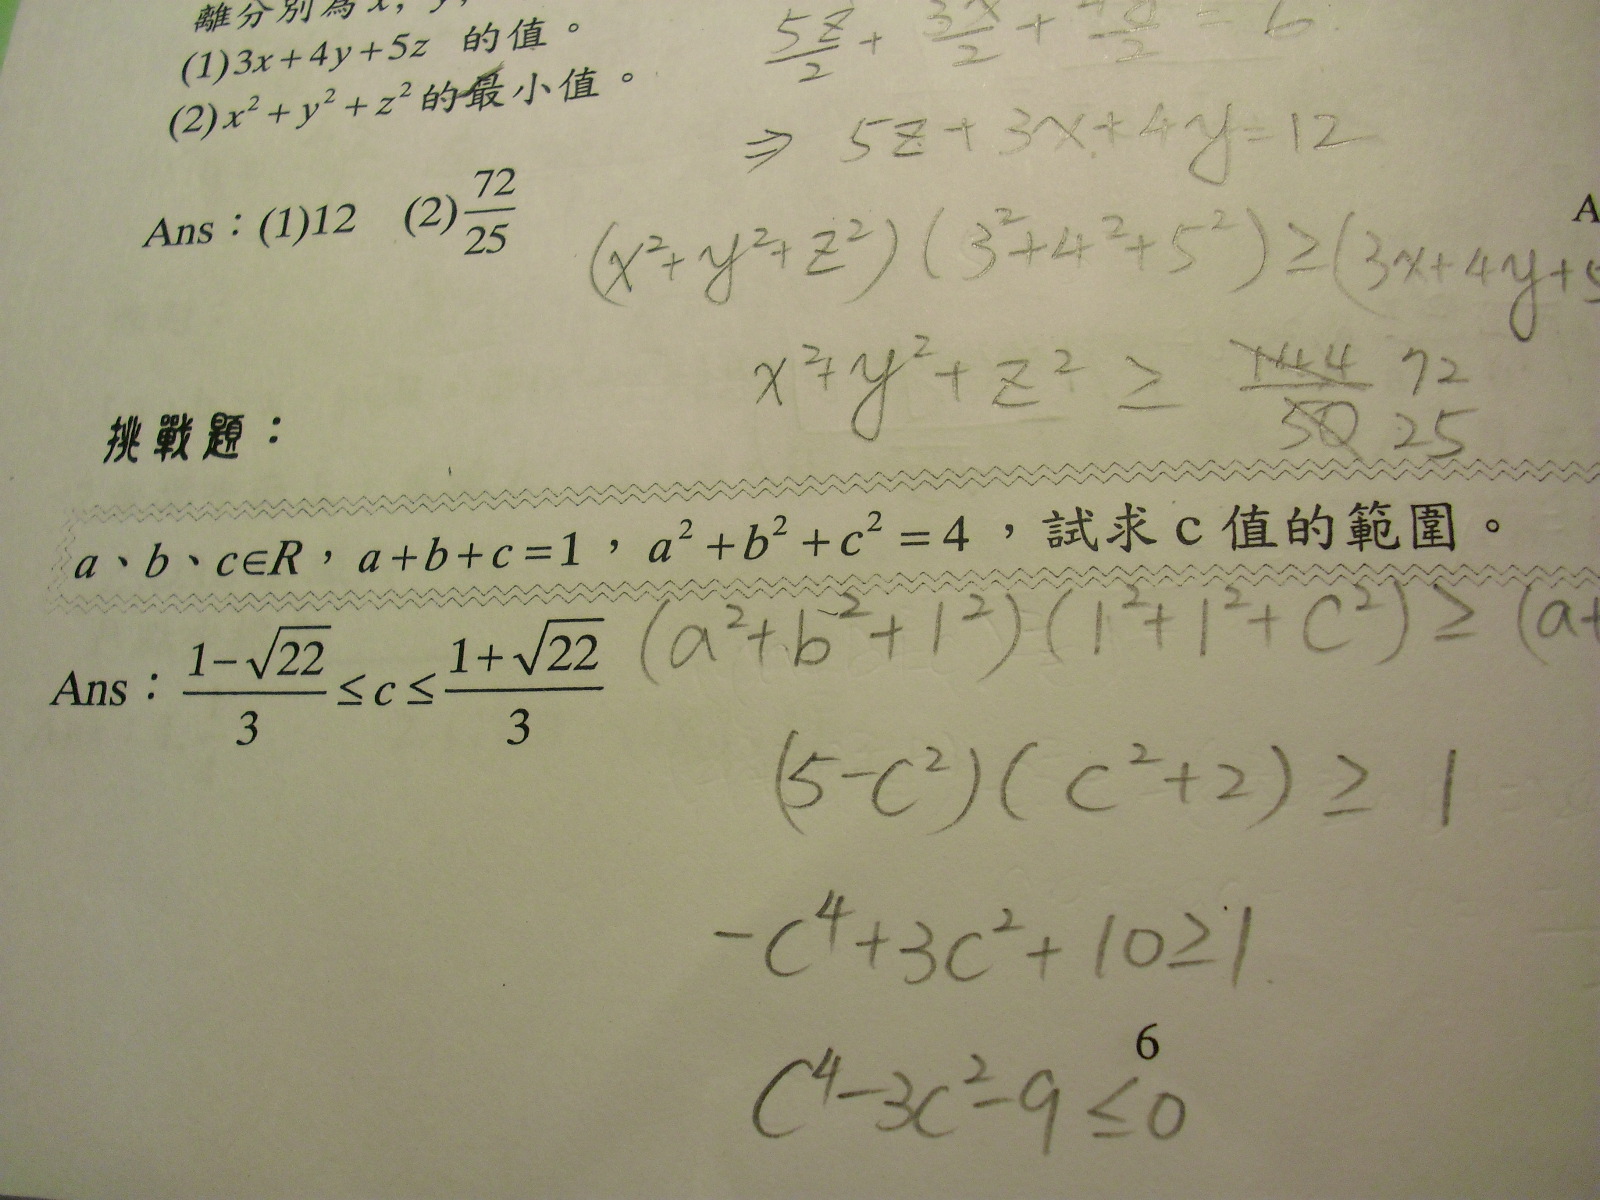 離分別為x, y,
(1)3x+4y+5z 的值。
(2)x²+y²+z²的最小值。
Ans：(1)12 (2)72/25
5z/2 + 3x/2 + 4y/2 = 6
⇒ 5z+3x+4y=12
(x²+y²+z²)(3²+4²+5²)≥(3x+4y+5
x²+y²+z² ≥ 144/50 72/25
A
挑戰題：
a、b、c∈R，a+b+c=1，a²+b²+c²=4，試求c值的範圍。
Ans：(1-√22)/3 ≤c≤ (1+√22)/3
(a²+b²+1²)(1²+1²+c²)≥(a+
(5-c²)(c²+2)≥1
-c⁴+3c²+10≥1
6
c⁴-3c²-9≤0